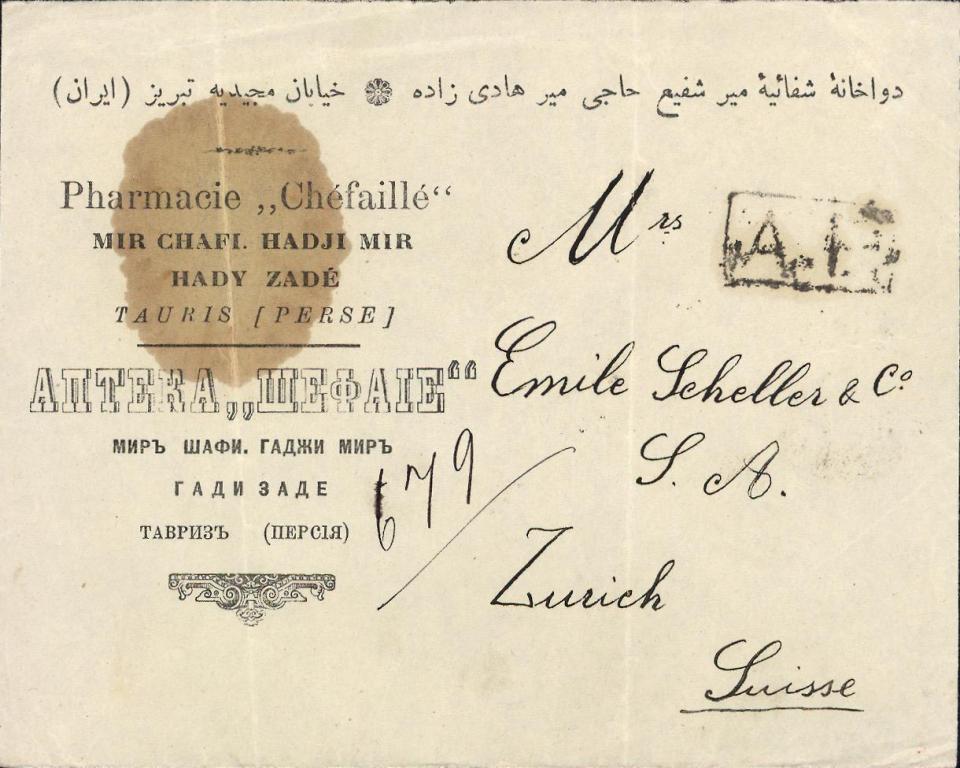 دواخانهٔ شفائیهٔ میر شفیع حاجی میر هادی زاده ❁ خیابان مجیدیه تبریز (ایران)
Pharmacie „Chéfaillé“
MIR CHAFI. HADJI MIR
HADY ZADÉ
TAURIS [PERSE]
АПТЕКА „ШЕФАІЕ“
МИРЪ ШАФИ. ГАДЖИ МИРЪ
ГАДИ ЗАДЕ
ТАВРИЗЪ (ПЕРСІЯ)
679
Mrs
A.R
Emile Scheller & Co
S. A.
Zurich
Suisse